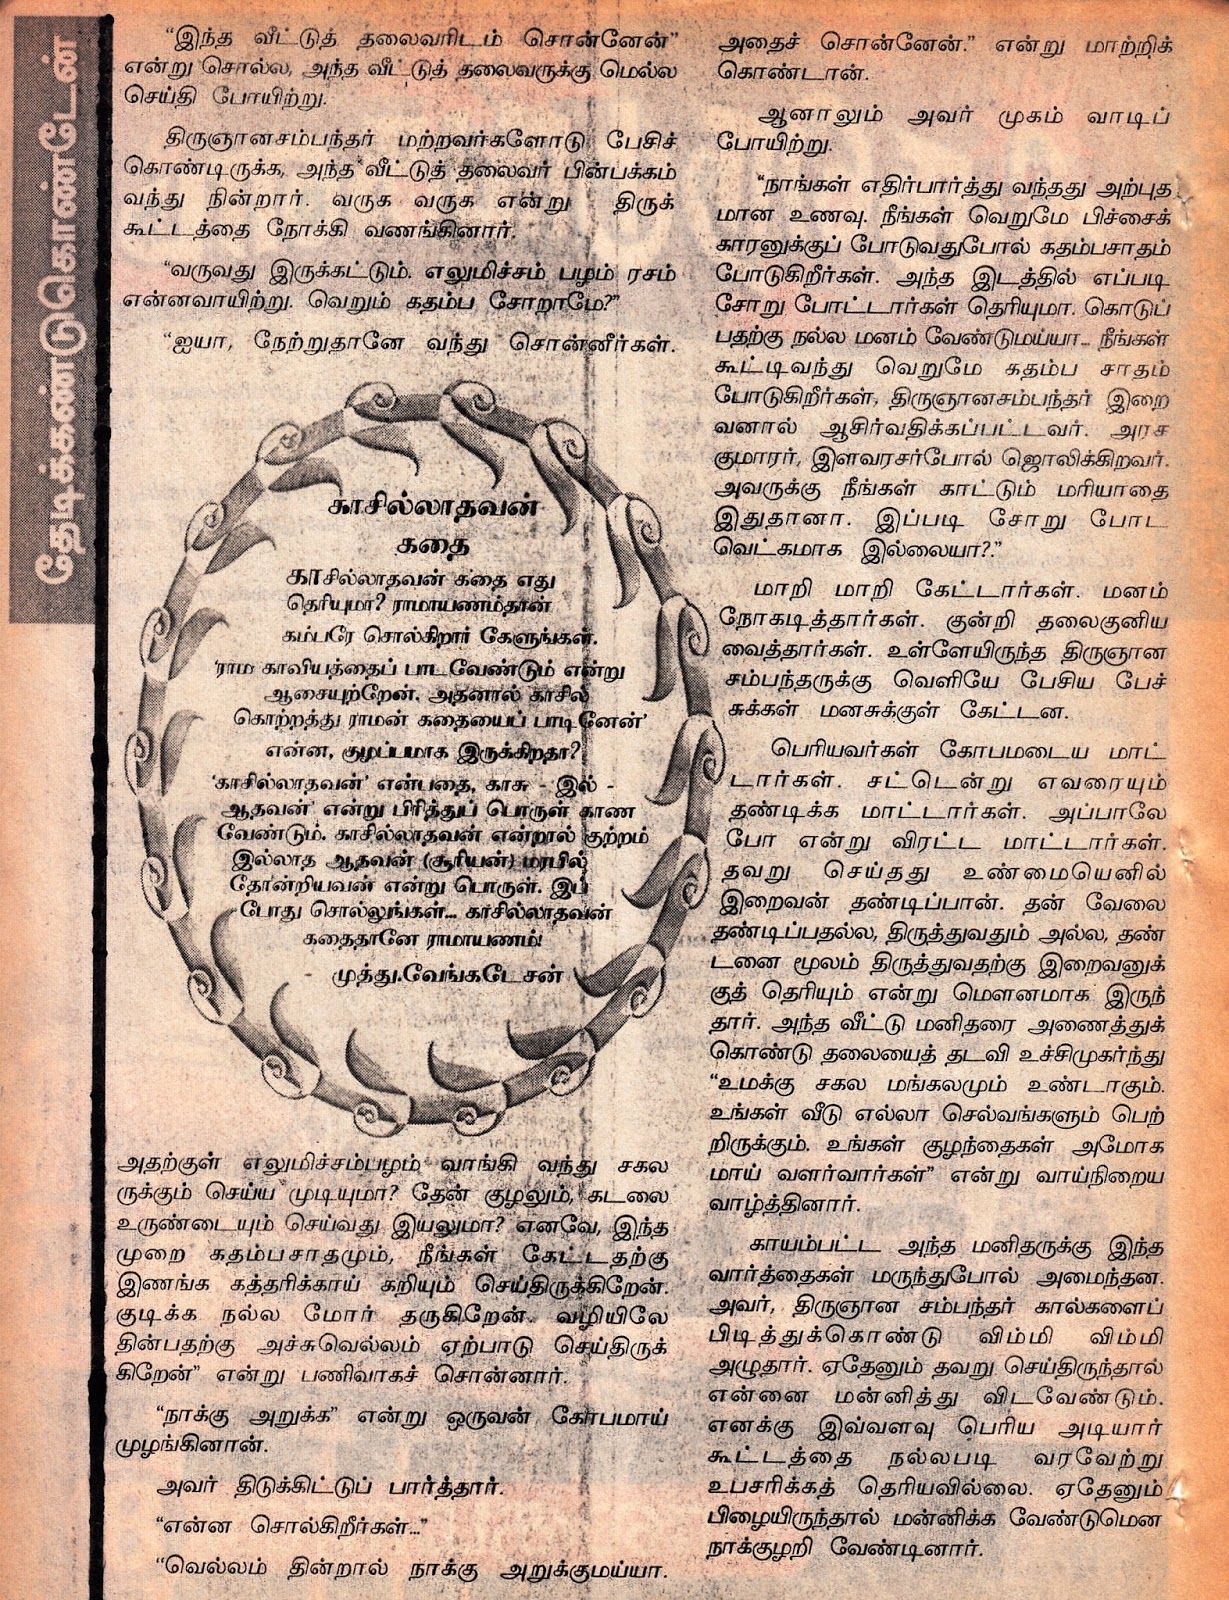 தேடிக்கண்டுகொண்டேன்
“இந்த வீட்டுத் தலைவரிடம் சொன்னேன்”
என்று சொல்ல, அந்த வீட்டுத் தலைவருக்கு மெல்ல
செய்தி போயிற்று.
திருஞானசம்பந்தர் மற்றவர்களோடு பேசிச்
கொண்டிருக்க, அந்த வீட்டுத் தலைவர் பின்பக்கம்
வந்து நின்றார். வருக வருக என்று திருக்
கூட்டத்தை நோக்கி வணங்கினார்.
“வருவது இருக்கட்டும். எலுமிச்சம் பழம் ரசம்
என்னவாயிற்று. வெறும் கதம்ப சோறாமே?”
“ஐயா, நேற்றுதானே வந்து சொன்னீர்கள்.
காசில்லாதவன்
கதை
காசில்லாதவன் கதை எது
தெரியுமா? ராமாயணம்தான்
கம்பரே சொல்கிறார் கேளுங்கள்.
‘ராம காவியத்தைப் பாட வேண்டும் என்று
ஆசையுற்றேன். அதனால் காசில்
கொற்றத்து ராமன் கதையைப் பாடினேன்’
என்ன, குழப்பமாக இருக்கிறதா?
‘காசில்லாதவன்’ என்பதை, காசு - இல் -
ஆதவன்’ என்று பிரித்துப் பொருள் காண
வேண்டும். காசில்லாதவன் என்றால் குற்றம்
இல்லாத ஆதவன் (சூரியன்) மரபில்
தோன்றியவன் என்று பொருள். இப்
போது சொல்லுங்கள்... காசில்லாதவன்
கதைதானே ராமாயணம்!
- முத்து.வேங்கடேசன்
அதற்குள் எலுமிச்சம்பழம் வாங்கி வந்து சகல
ருக்கும் செய்ய முடியுமா? தேன் குழலும், கடலை
உருண்டையும் செய்வது இயலுமா? எனவே, இந்த
முறை கதம்பசாதமும், நீங்கள் கேட்டதற்கு
இணங்க கத்தரிக்காய் கறியும் செய்திருக்கிறேன்.
குடிக்க நல்ல மோர் தருகிறேன். வழியிலே
தின்பதற்கு அச்சுவெல்லம் ஏற்பாடு செய்திருக்
கிறேன்” என்று பணிவாகச் சொன்னார்.
“நாக்கு அறுக்க” என்று ஒருவன் கோபமாய்
முழங்கினான்.
அவர் திடுக்கிட்டுப் பார்த்தார்.
“என்ன சொல்கிறீர்கள்...”
“வெல்லம் தின்றால் நாக்கு அறுக்குமய்யா.
அதைச் சொன்னேன்.” என்று மாற்றிக்
கொண்டான்.
ஆனாலும் அவர் முகம் வாடிப்
போயிற்று.
“நாங்கள் எதிர்பார்த்து வந்தது அற்புத
மான உணவு. நீங்கள் வெறுமே பிச்சைக்
காரனுக்குப் போடுவதுபோல் கதம்பசாதம்
போடுகிறீர்கள். அந்த இடத்தில் எப்படி
சோறு போட்டார்கள் தெரியுமா. கொடுப்
பதற்கு நல்ல மனம் வேண்டுமய்யா... நீங்கள்
கூட்டிவந்து வெறுமே கதம்ப சாதம்
போடுகிறீர்கள், திருஞானசம்பந்தர் இறை
வனால் ஆசிர்வதிக்கப்பட்டவர். அரச
குமாரர், இளவரசர்போல் ஜொலிக்கிறவர்.
அவருக்கு நீங்கள் காட்டும் மரியாதை
இதுதானா. இப்படி சோறு போட
வெட்கமாக இல்லையா?.”
மாறி மாறி கேட்டார்கள். மனம்
நோகடித்தார்கள். குன்றி தலைகுனிய
வைத்தார்கள். உள்ளேயிருந்த திருஞான
சம்பந்தருக்கு வெளியே பேசிய பேச்
சுக்கள் மனசுக்குள் கேட்டன.
பெரியவர்கள் கோபமடைய மாட்
டார்கள். சட்டென்று எவரையும்
தண்டிக்க மாட்டார்கள். அப்பாலே
போ என்று விரட்ட மாட்டார்கள்.
தவறு செய்தது உண்மையெனில்
இறைவன் தண்டிப்பான். தன் வேலை
தண்டிப்பதல்ல, திருத்துவதும் அல்ல, தண்
டனை மூலம் திருத்துவதற்கு இறைவனுக்
குத் தெரியும் என்று மௌனமாக இருந்
தார். அந்த வீட்டு மனிதரை அணைத்துக்
கொண்டு தலையைத் தடவி உச்சிமுகர்ந்து
“உமக்கு சகல மங்கலமும் உண்டாகும்.
உங்கள் வீடு எல்லா செல்வங்களும் பெற்
றிருக்கும். உங்கள் குழந்தைகள் அமோக
மாய் வளர்வார்கள்” என்று வாய்நிறைய
வாழ்த்தினார்.
காயம்பட்ட அந்த மனிதருக்கு இந்த
வார்த்தைகள் மருந்துபோல் அமைந்தன.
அவர், திருஞான சம்பந்தர் கால்களைப்
பிடித்துக்கொண்டு விம்மி விம்மி
அழுதார். ஏதேனும் தவறு செய்திருந்தால்
என்னை மன்னித்து விடவேண்டும்.
எனக்கு இவ்வளவு பெரிய அடியார்
கூட்டத்தை நல்லபடி வரவேற்று
உபசரிக்கத் தெரியவில்லை. ஏதேனும்
பிழையிருந்தால் மன்னிக்க வேண்டுமென
நாக்குழறி வேண்டினார்.